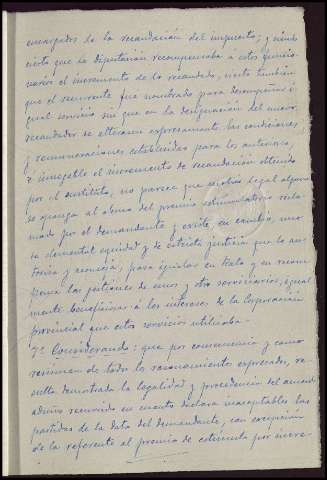 encargados de la recaudación del impuesto; y siendo
cierto que la Diputación recompensaba á estos funcio-
narios el incremento de lo recaudado, cierto también
que el recurrente fué nombrado para desempeñar i-
gual servicio sin que en la designación del nuevo
recaudador se alterasen expresamente las condiciones
y remuneraciones establecidas para los anteriores,
é innegable el incremento de recaudación obtenido
por el sustituto, no parece que motivo legal alguno
se oponga al abono del premio estimulatorio recla-
mado por el demandante y existe, en cambio, una
elemental equidad y de estricta justicia que lo au-
toriza y aconseja, para igualar en trato y en recom-
pensa las gestiones de unos y otro servidores, igual-
mente beneficiosas á los intereses de la Corporación
provincial que estos servicios utilizaba.
7º Considerando: que por consecuencia y como
resumen de todo lo razonamientos expresados, re-
sulta demostrada la legalidad y procedencia del acuerdo
recurrido en cuanto declara inaceptables las
partidas de la data del demandante, con excepción
de la referente al premio de cobranza por incre-